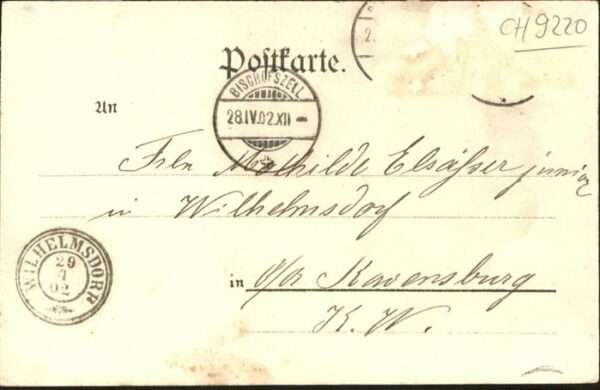 CH 9220
Postkarte.
BISCHOFSZELL
28.IV.02.XII-
An
Frln Mathilde Elsässer junior
in Wilhelmsdorf
WILHELMSDORF
29
4
02
in O/A Ravensburg
K. W.